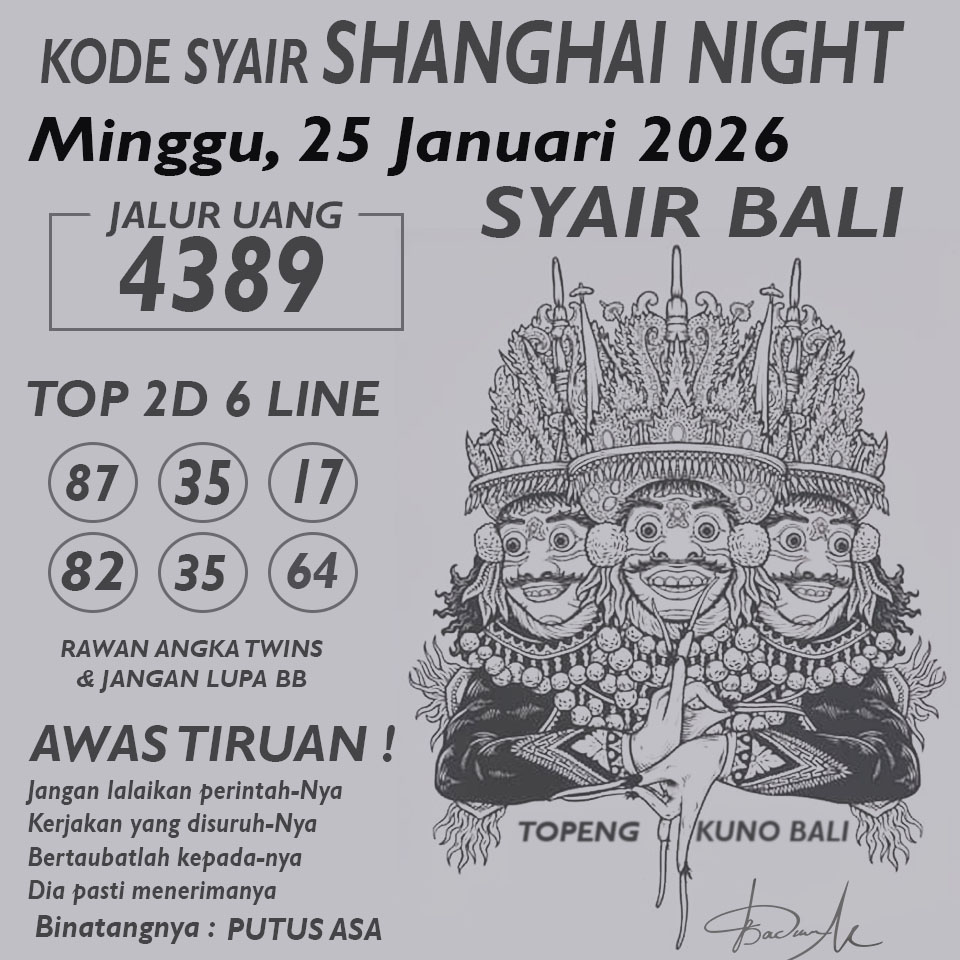 KODE SYAIR SHANGHAI NIGHT
Minggu, 25 Januari 2026
SYAIR BALI
JALUR UANG
4389
TOP 2D 6 LINE
87 35 17
82 35 64
RAWAN ANGKA TWINS
& JANGAN LUPA BB
AWAS TIRUAN !
Jangan lalaikan perintah-Nya
Kerjakan yang disuruh-Nya
Bertaubatlah kepada-nya
Dia pasti menerimanya
Binatangnya : PUTUS ASA
TOPENG KUNO BALI